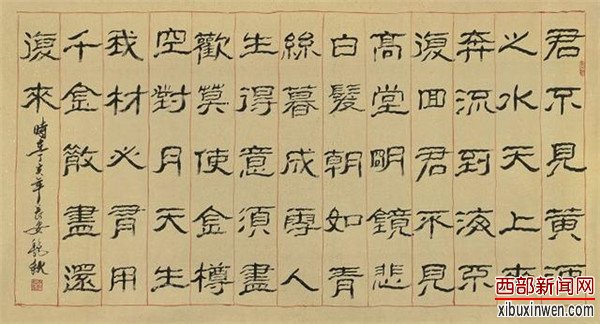 君不見黃河
之水天上來
奔流到海不
復回君不見
高堂明鏡悲
白髮朝如青
絲暮成雪人
生得意須盡
歡莫使金樽
空對月天生
我材必有用
千金散盡還
復來
時在丁亥年
西部新闻网
xibuxinwen.com